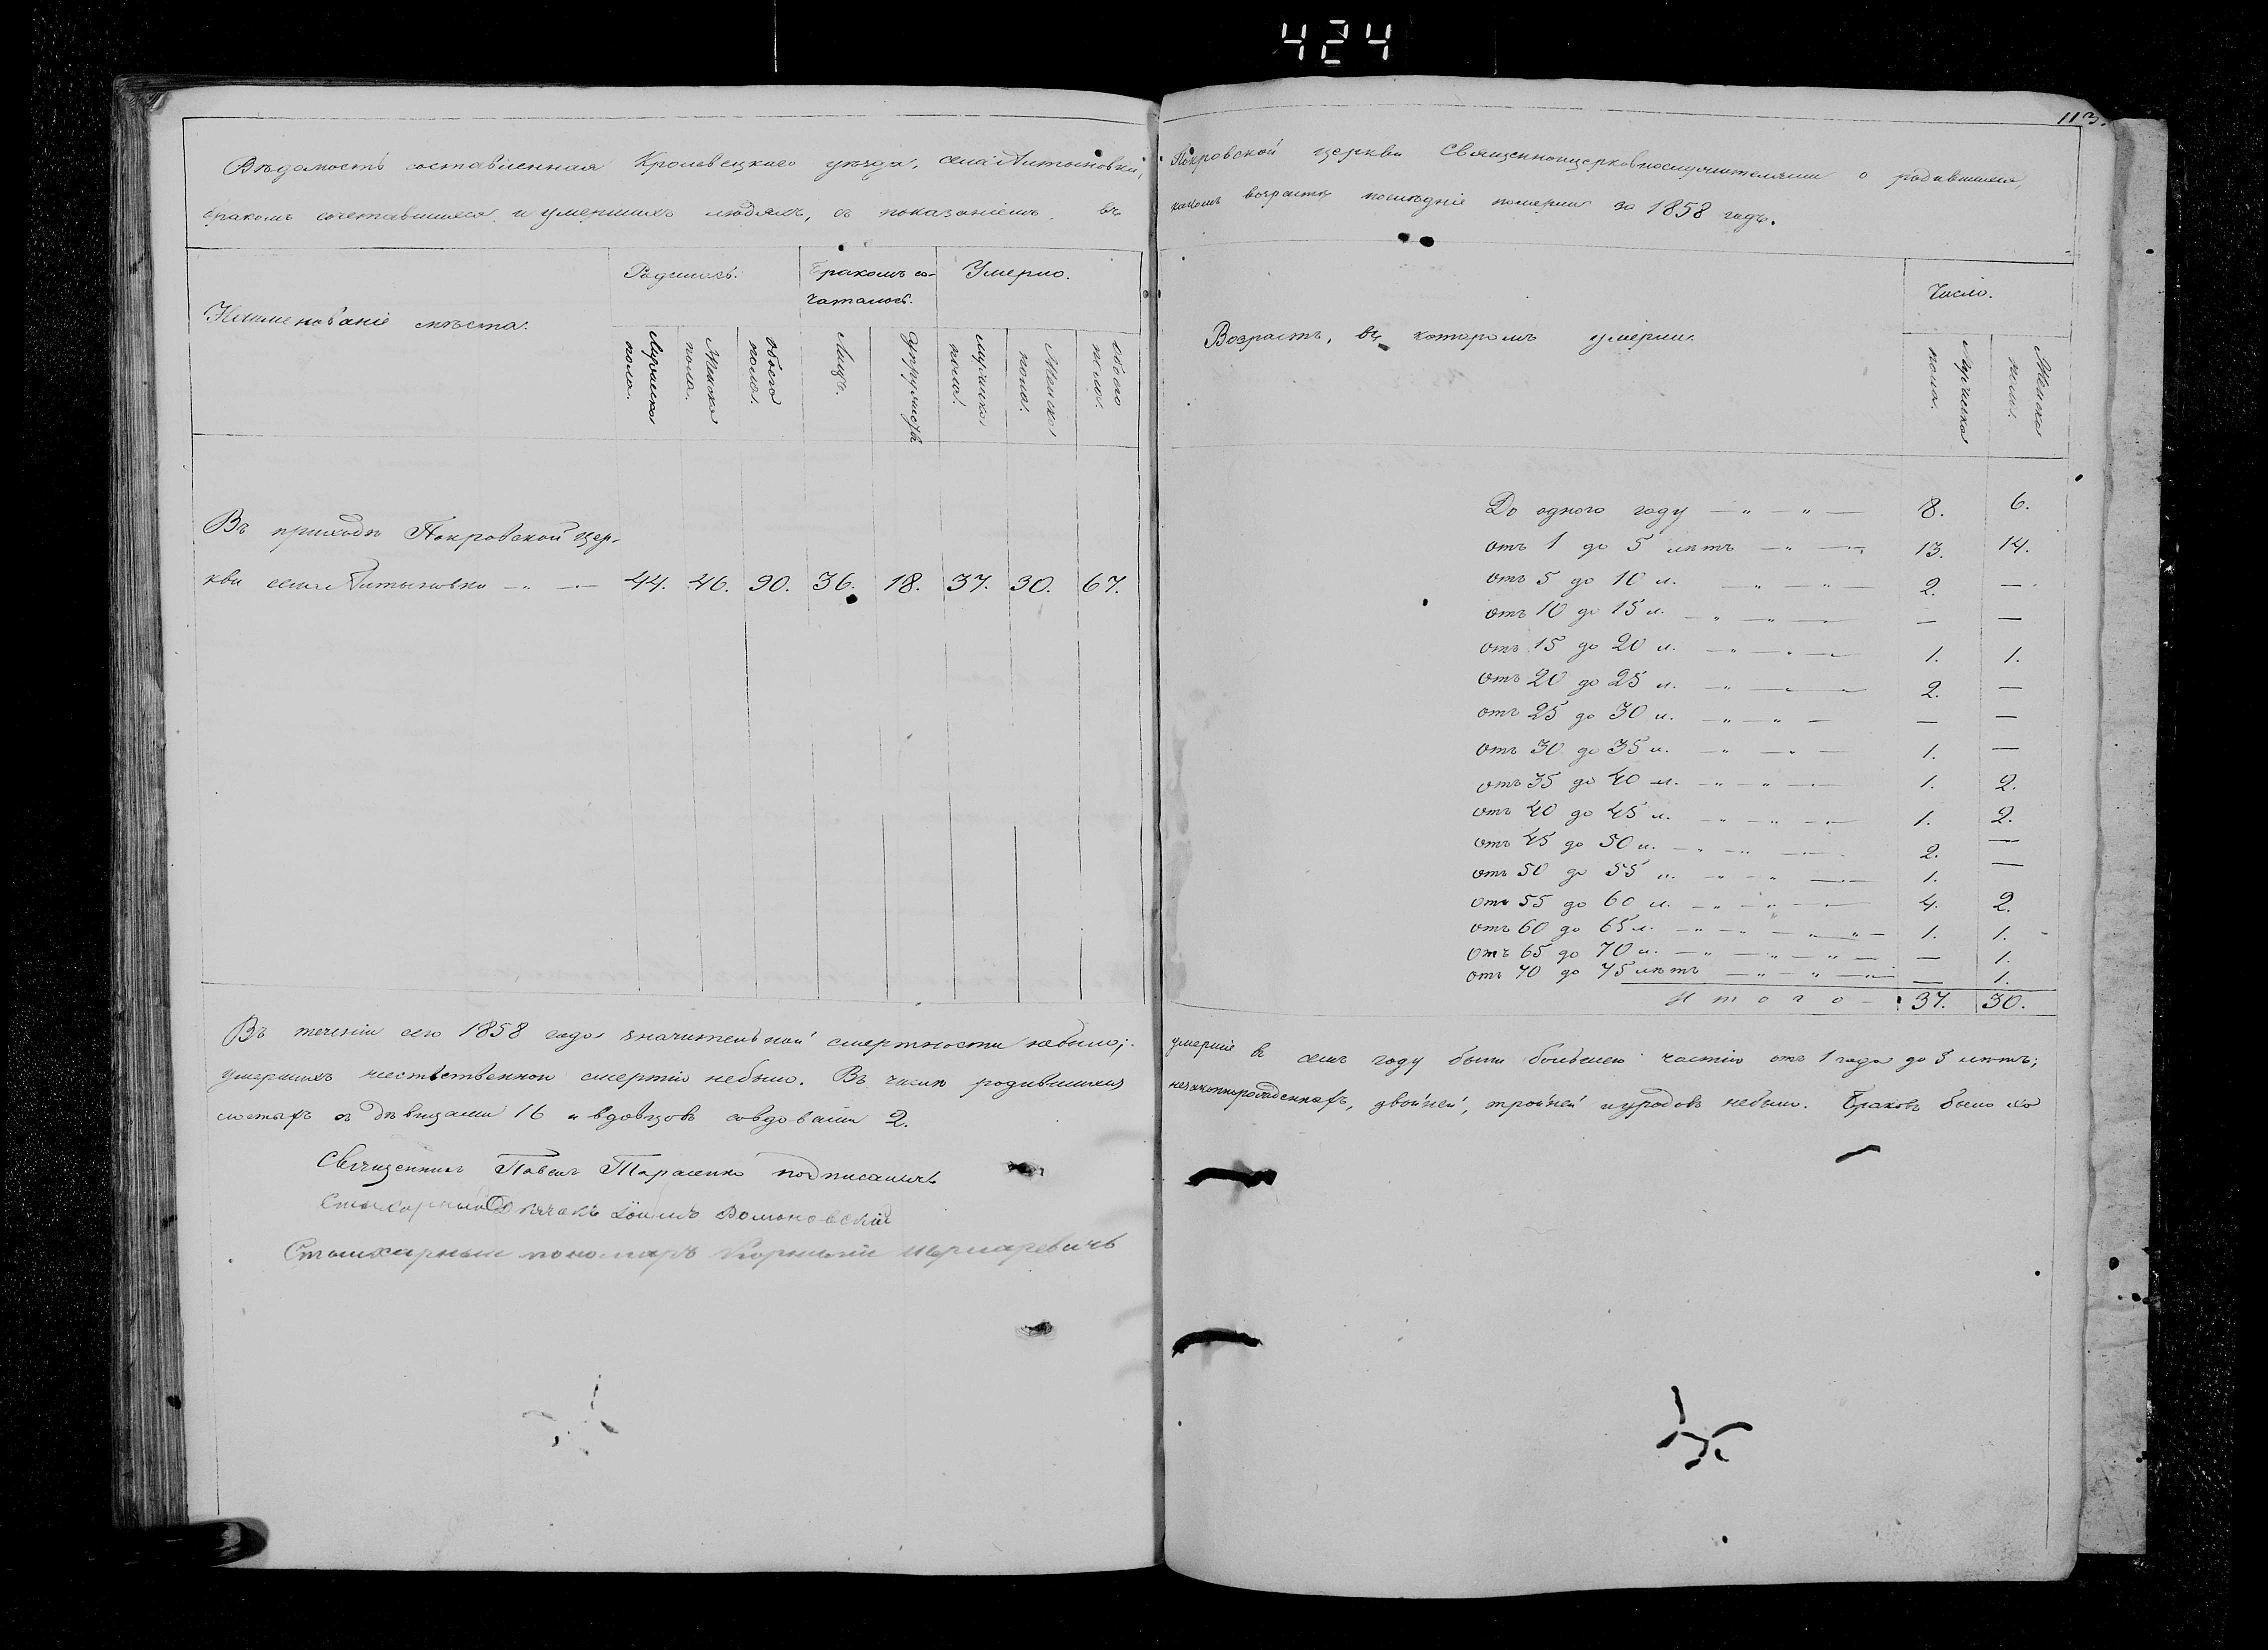 424
113.
Вѣдомость составленная Кролевецкаго уѣзда, села Литыновки,
бракомъ сочетавшихся и умершихъ людяхъ, съ показаніемъ, въ
Наименованіе мѣста.
Родилось.
Бракомъ со-
четалось.
Умерло.
Мужеска пола.
Женска пола.
Обоего пола.
Лицъ.
Супружествъ
Мужеска пола.
Женска пола.
Обоего пола.
Въ приходѣ Покровской цер-
кви села Литыновки — 44. 46. 90. 36. 18. 37. 30. 67.
Въ теченіи сего 1858 года значительной смертности небыло;
умершихъ неестественною смертію небыло. Въ числѣ родившихся
лостыхъ съ дѣвицами 16 и вдовцовъ совдовами 2.
Священникъ Павелъ Тарасенко подписался
Стихарный Дьячокъ
Стихарный пономарь
Покровской церкви Священноцерковнослужителями о родившихся,
какомъ возрастѣ послѣдніе померли за 1858 годъ.
Возрастъ, въ которомъ умерли.
Число.
Мужеска пола.
Женска пола.
До одного году — 8. 6.
отъ 1 до 5 лѣтъ — 13. 14.
отъ 5 до 10 л. — 2. —
отъ 10 до 15 л. — — —
отъ 15 до 20 л. — 1. 1.
отъ 20 до 25 л. — 2. —
отъ 25 до 30 л. — — —
отъ 30 до 35 л. — 1. —
отъ 35 до 40 л. — 1. 2.
отъ 40 до 45 л. — 1. 2.
отъ 45 до 50 л. — 2. —
отъ 50 до 55 л. — 1. —
отъ 55 до 60 л. — 4. 2.
отъ 60 до 65 л. — 1. 1.
отъ 65 до 70 л. — — 1.
отъ 70 до 75 лѣтъ — — 1.
Итого — 37. 30.
умершіе въ семъ году были большею частію отъ 1 года до 5 лѣтъ;
незаконнорожденныхъ, двойней, тройней и уродовъ небыло. Браковъ было хо